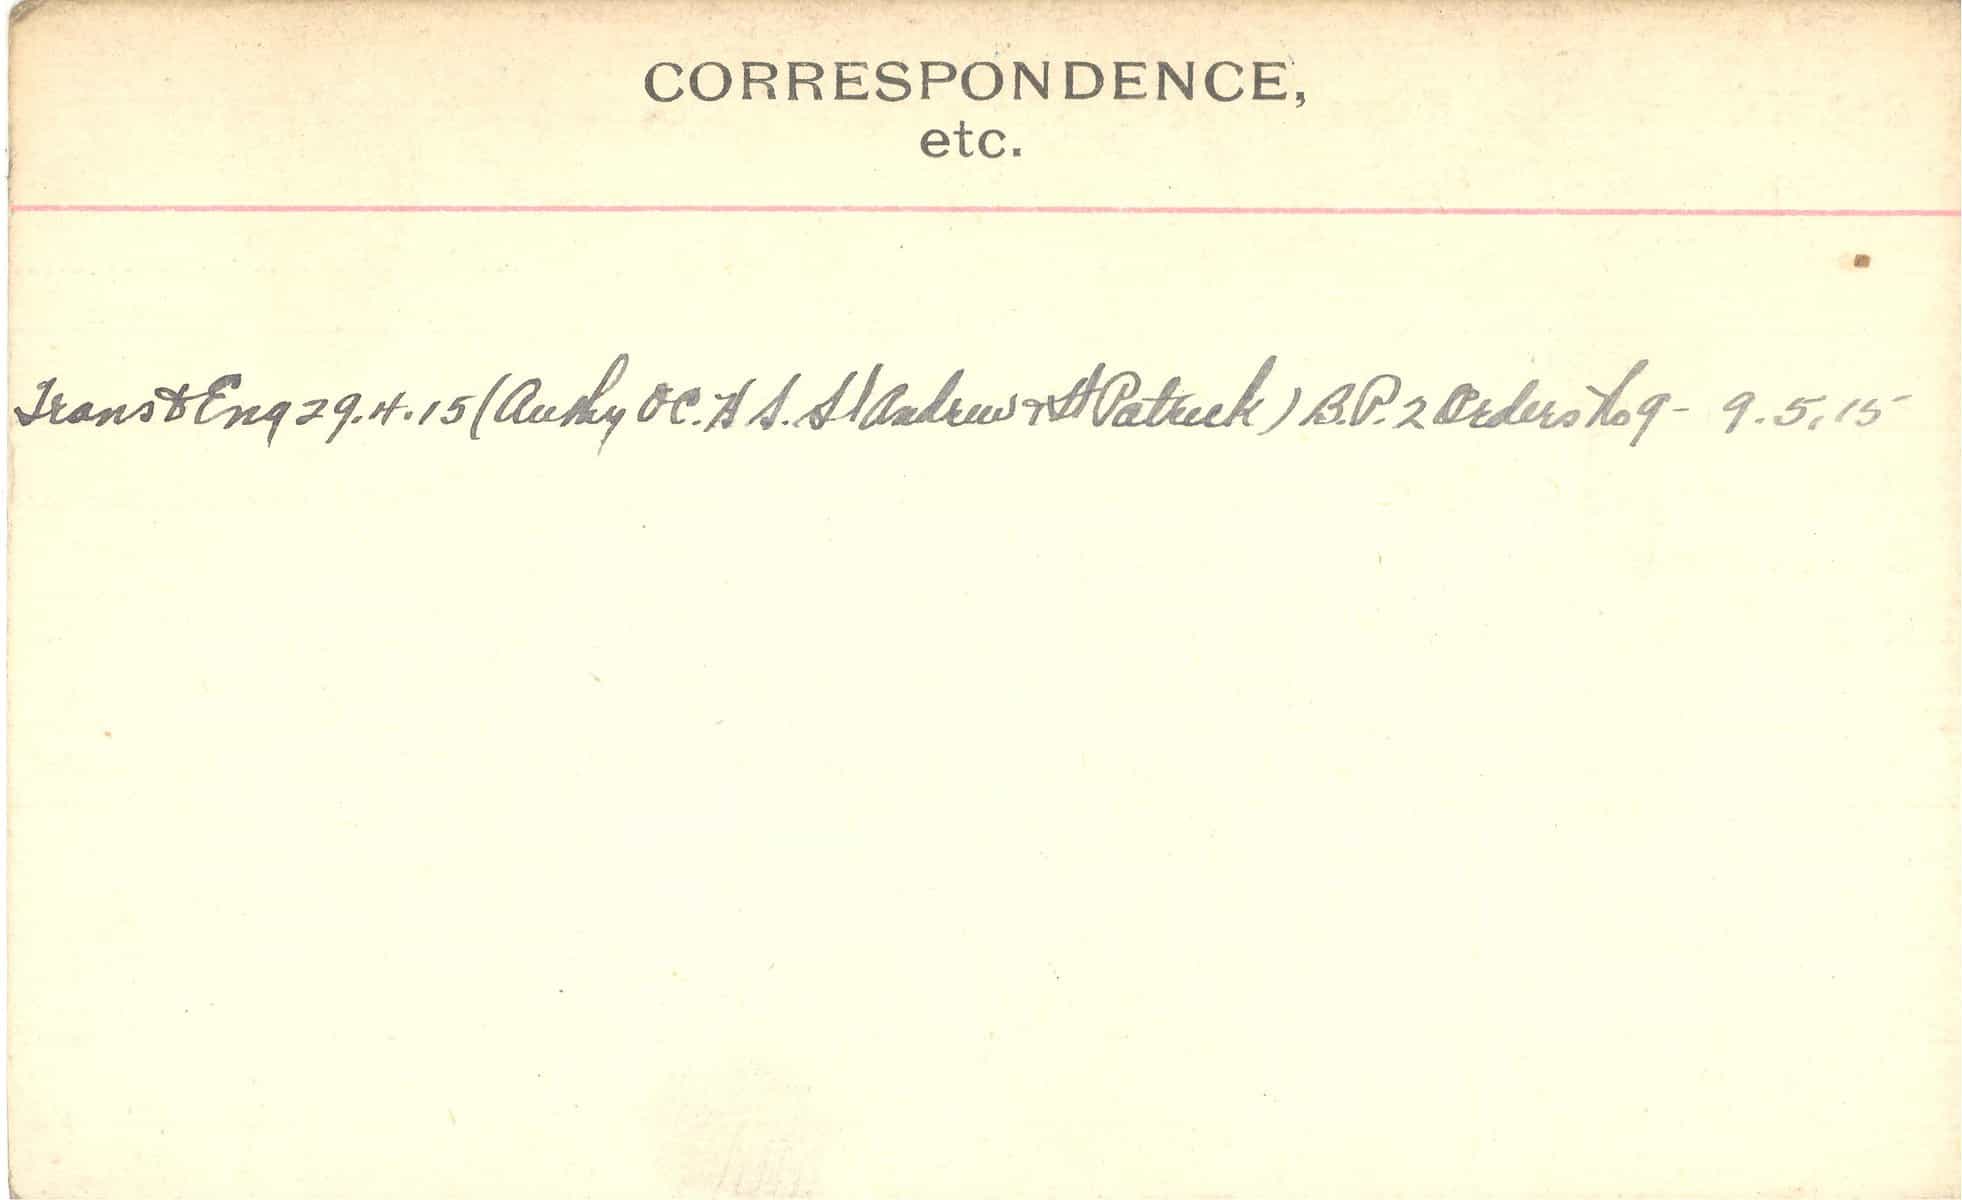 CORRESPONDENCE,
etc.
Trans to Eng 29.4.15 (Authy OC. H S. St Andrew & St Patrick) B.P. 2 Orders No 9 - 9.5.15